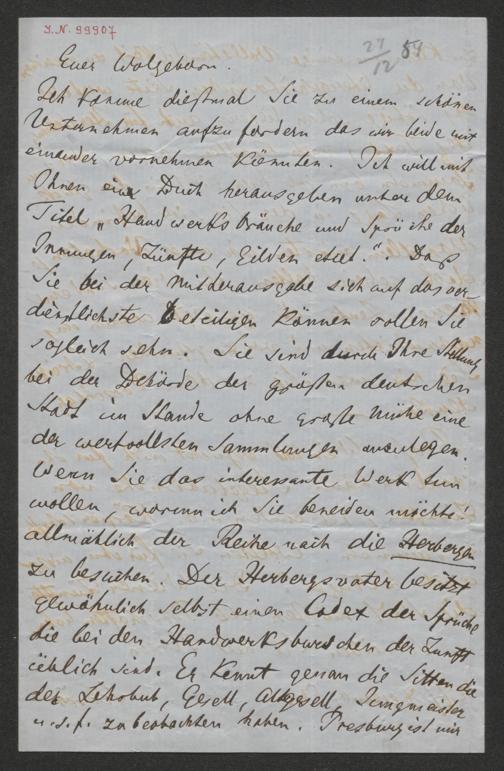 I.N. 99907
27/12 59
Euer Wolgeborn.
Ich komme dießmal Sie zu einem schönen
Unternehmen aufzufordern das wir beide mit
einander vornehmen könnten. Ich will mit
Ihnen ein Buch herausgeben unter dem
Titel „Handwerksbräuche und Sprüche der
Innungen, Zünfte, Gilden etct.“. Daß
Sie bei der Mitherausgabe sich auf das ver
dienstlichste beteiligen können sollen Sie
sogleich sehn. Sie sind durch Ihre Stellung
bei der Behörde der größten deutschen
Stadt im Stande ohne große Mühe eine
der wertvollsten Sammlungen anzulegen.
Wenn Sie das interessante Werk tun
wollen, worum ich Sie beneiden möchte!
allmählich der Reihe nach die Herbergen
zu besuchen. Der Herbergsvater besitzt
gewöhnlich selbst einen Codex der Sprüche
die bei den Handwerksburschen der Zunft
üblich sind. Er kennt genau die Sitten die
der Lehrbub, Gesell, Altgesell, Jungmeister
u.s.f. zu beobachten haben. Presburg ist mir